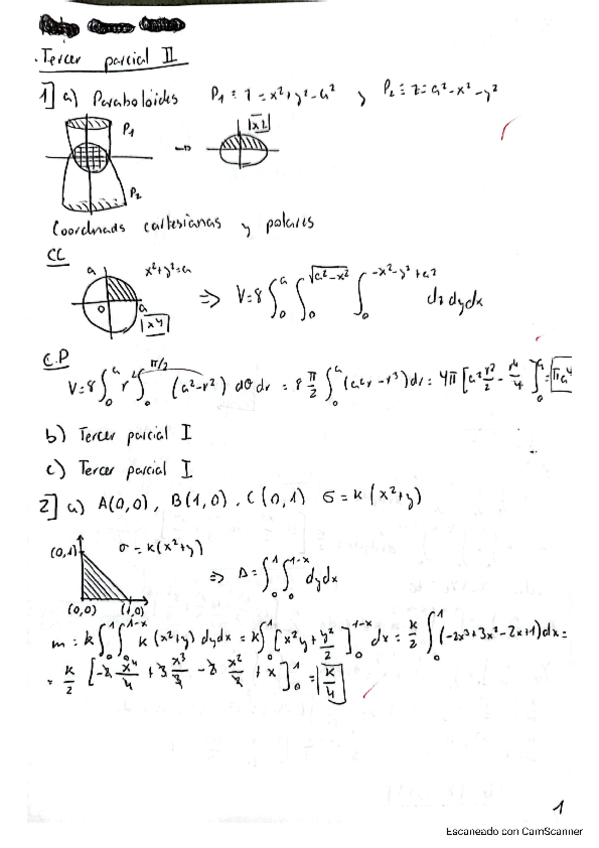 . Tercer parcial II
1] a) Paraboloides P₁ ≡ z = x²+y²-a² y P₂ ≡ z = a²-x²-y²
P₁ |x2|
P₂
Coordnads cartesianas y polares
CC
a x²+y²=a
0 a |x4| => V=8 ∫₀^a ∫₀^√(a²-x²) ∫₀^(-x²-y²+a²) dz dy dx
C.P
V=8 ∫₀^a r ∫₀^(π/2) (a²-r²) dθ dr = 8 π/2 ∫₀^a (a²r-r³) dr = 4π [a² r²/2 - r⁴/4]₀^a = πa⁴
b) Tercer parcial I
c) Tercer parcial I
2] a) A(0,0), B(1,0), C(0,1) σ = k(x²+y)
(0,1) σ = k(x²+y)
=> D = ∫₀^1 ∫₀^(1-x) dy dx
(0,0) (1,0)
m = k ∫₀^1 ∫₀^(1-x) k(x²+y) dy dx = k ∫₀^1 [x²y + y²/2]₀^(1-x) dx = k/2 ∫₀^1 (-2x³+3x²-2x+1) dx =
= k/2 [-2 x⁴/4 + 3 x³/3 - 2 x²/2 + x]₀^1 = k/4
1
Escaneado con CamScanner